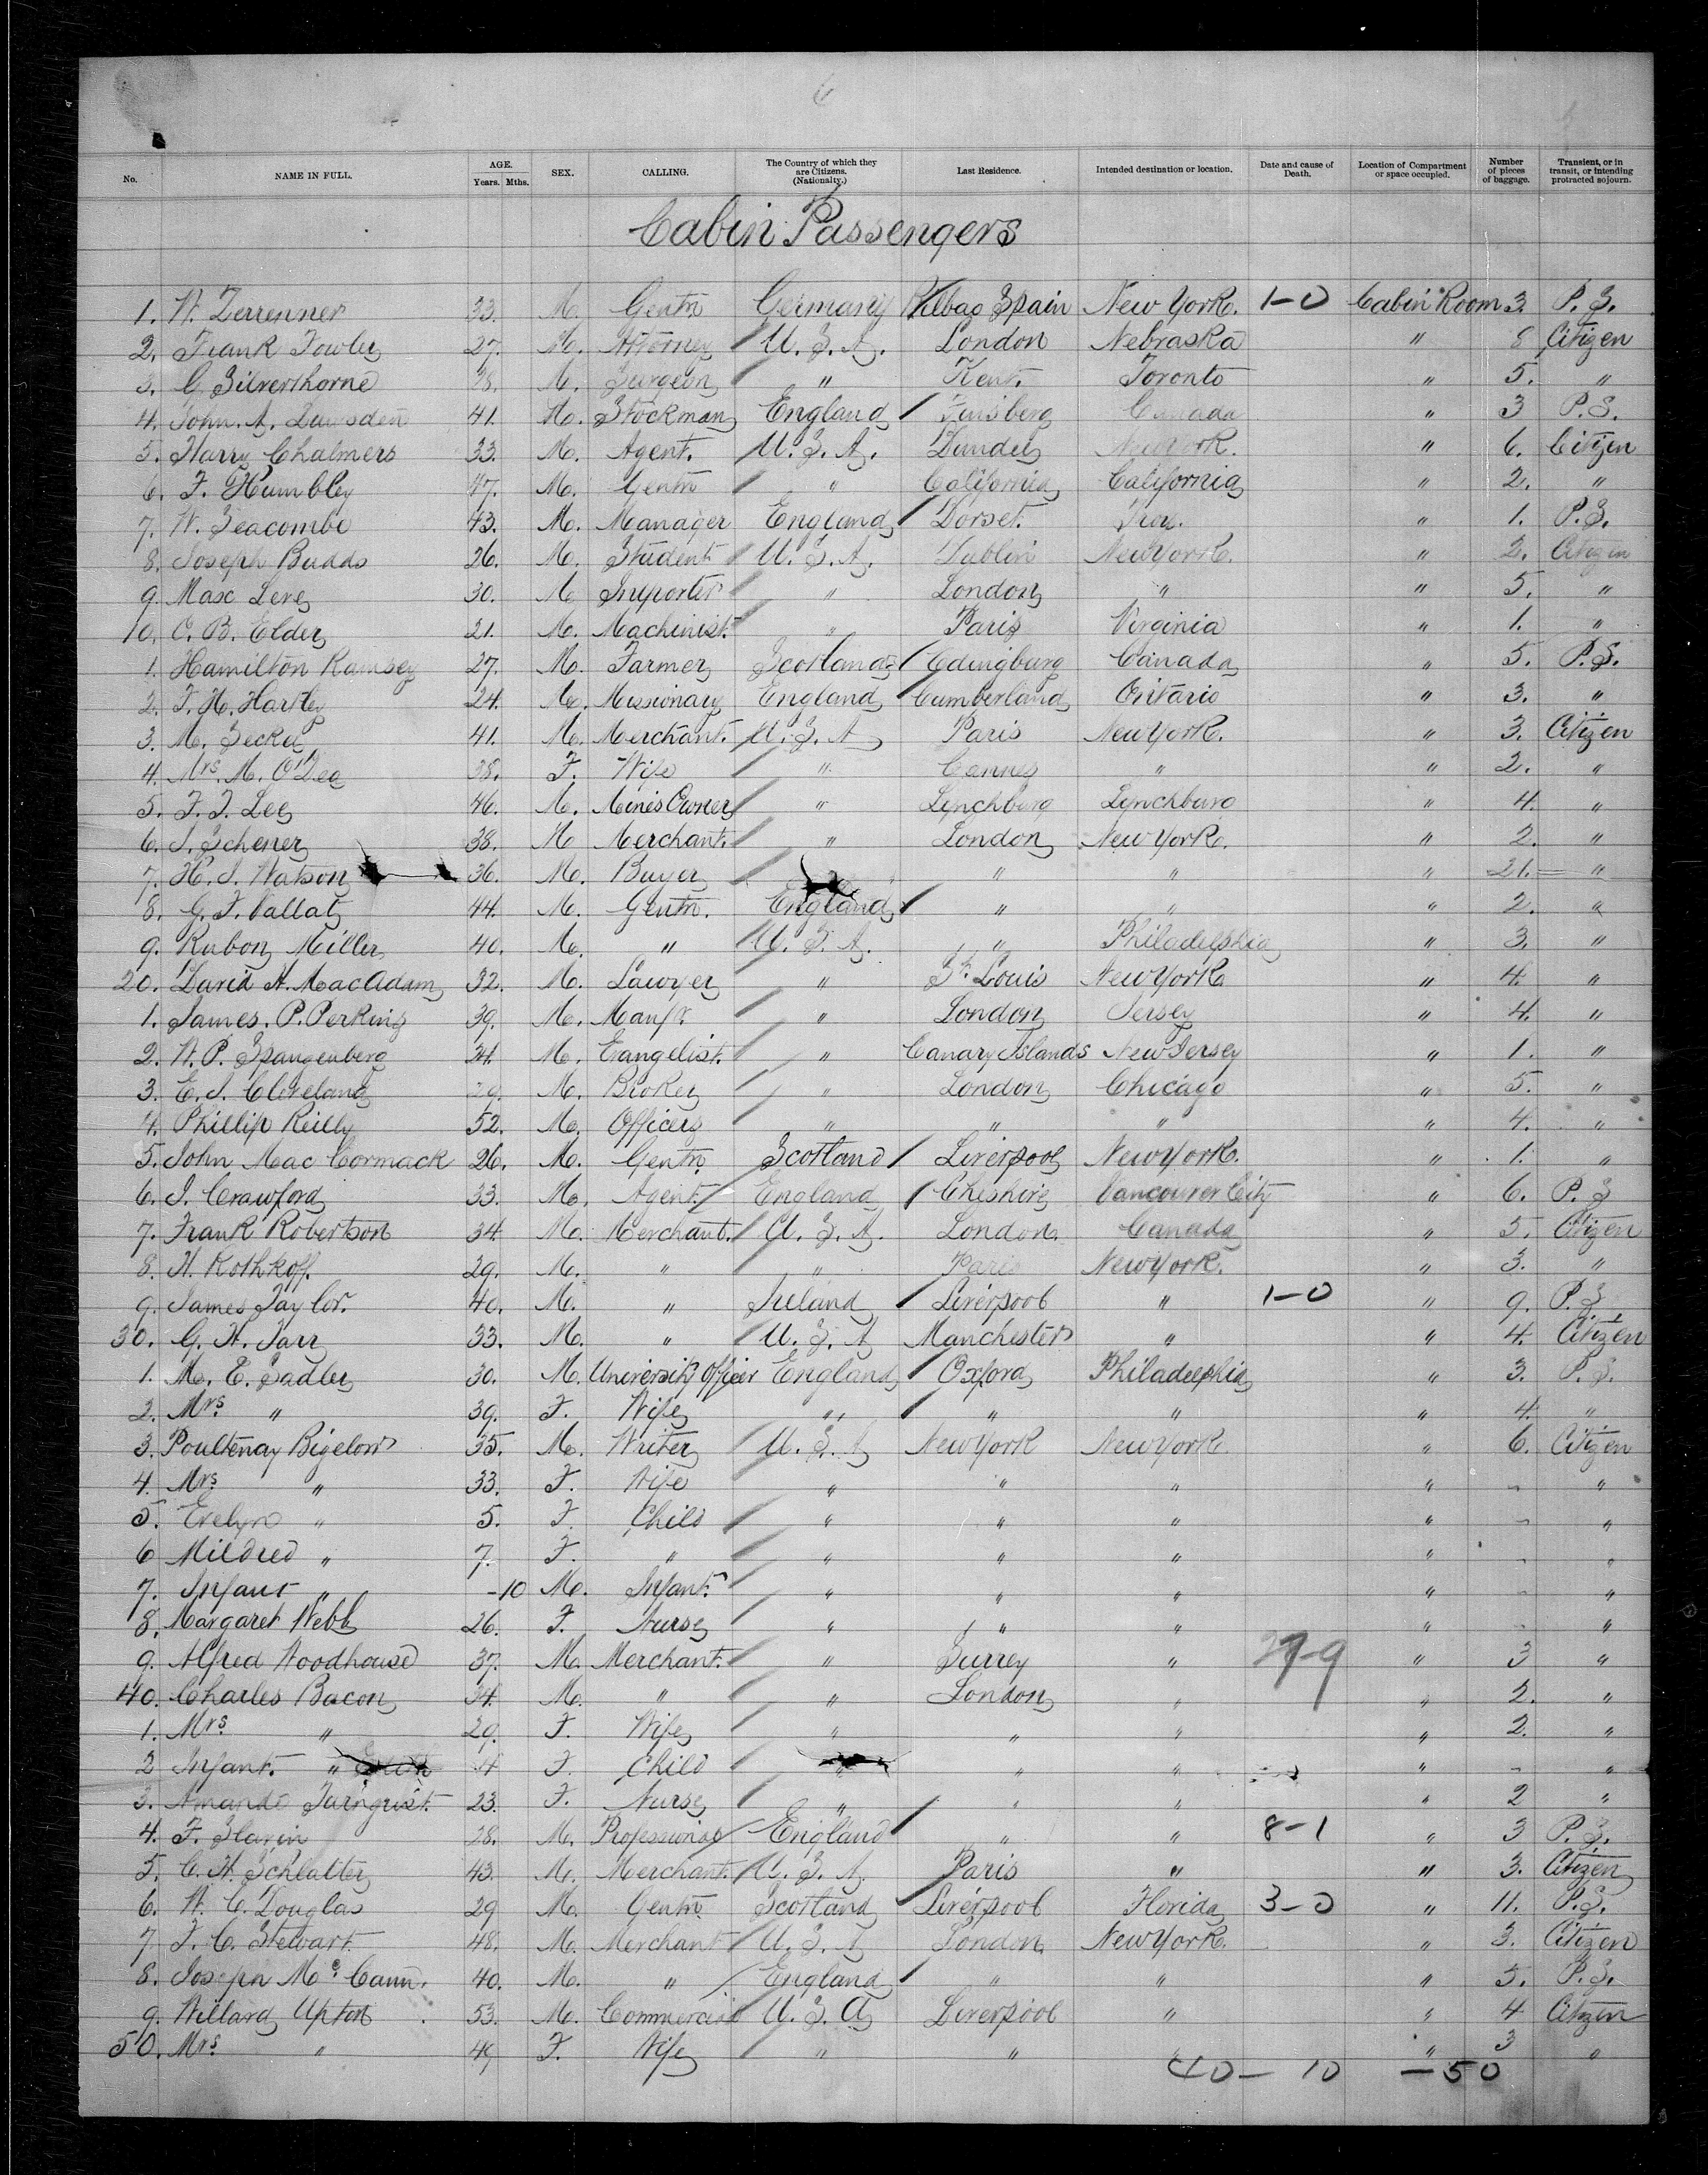 No. NAME IN FULL. AGE. Years. Mths. SEX. CALLING. The Country of which they are Citizens. (Nationality.) Last Residence. Intended destination or location. Date and cause of Death. Location of Compartment or space occupied. Number of pieces of baggage. Transient, or in transit, or intending protracted sojourn.
Cabin Passengers
1. W. Zerrenner 33. M. Gentn Germany Bilbao Spain New York. 1-0 Cabin Room 3. P.S.
2. Frank Fowler 27. M. Attorney U.S.A. London Nebraska " 8 Citizen
3. G. Silverthorne 28. M. Surgeon " Kent. Toronto " 5. "
4. John. A. 41. M. Stockman England Canada " 3 P.S.
5. Harry Chalmers 33. M. Agent. U.S.A. Dundee New York. " 6. Citizen
6. F. Humbley 47. M. Gentn " California California " 2. "
7. W. Seacombe 43. M. Manager England Dorset. Troy. " 1. P.S.
8. Joseph Budds 26. M. Student U.S.A. Dublin New York. " 2. Citizen
9. Max Levy 30. M Importer " London " " 5. "
10. C. B. Elder 21. M. Machinist. " Paris Virginia " 1. "
1. Hamilton Ramsey 27. M. Farmer Scotland Edingburg Canada " 5. P.S.
2. F. H. Hartley 24. M. Missionary England Cumberland Ontario " 3. "
3. M. 41. M. Merchant. U.S.A Paris New York. " 3. Citizen
4. Mrs. M. O'Dea 38. F. Wife " Cannes " " 2. "
5. F. F. Lee 46. M. Mines Owner " Lynchburg Lynchburg " 4. "
6. J. Schener 38. M Merchant. " London New York. " 2. "
7. H. J. Watson 36. M. Buyer " " " 21. "
8. G. F. 44. M. Gentn. England " " " 2. "
9. Rubon Miller 40. M. " U.S.A. " Philadelphia " 3. "
20. David H. MacAdam 32. M. Lawyer " St. Louis New York " 4. "
1. James. P. Perkins 39. M. Manfr. " London Jersey " 4. "
2. W. P. Spangenberg 34. M. Evangelist. " Canary Islands New Jersey " 1. "
3. E. J. Cleveland 29. M. Broker " London Chicago " 5. "
4. Phillip Reilly 52. M. Officer " " " " 4. "
5. John Mac Cormack 26. M. Gentn Scotland Liverpool New York. " 1. "
6. J. Crawford 33. M. Agent. England Cheshire Vancouver City " 6. P.S
7. Frank Robertson 34 M. Merchant. U.S.A. London. Canada " 5. Citizen
8. H. Rothkoff. 29. M. " " Paris New York. " 3. "
9. James Taylor. 40. M. " Ireland Liverpool " 1-0 " 9. P.S.
30. G. H. Tarr 33. M. " U.S.A Manchester " " 4. Citizen
1. M. E. Sadler 30. M. University Officer England Oxford Philadelphia " 3. P.S.
2. Mrs. " 39. F. Wife " " " " 4. "
3. Poultenay Bigelow 35. M. Writer U.S.A New York New York. " 6. Citizen
4. Mrs " 33. F. Wife " " " " - "
5. Evelyn " 5. F. Child " " " " - "
6 Mildred " 7. F. " " " " " - "
7. Infant " -10 M. Infant. " " " " - "
8. Margaret Webb 26. F. Nurse " " " " - "
9. Alfred Woodhouse 37. M. Merchant. " Surrey " " 3 "
40. Charles Bacon 34. M. " " London " " 2. "
1. Mrs " 29. F. Wife " " " " 2. "
2 Infant. " 4 F. Child " " " " - "
3. Amanda Turnquist. 23. F. Nurse " " " " 2 "
4. F. Slavin 28. M. Professional England " " 8-1 " 3 P.S.
5. C. H. Schlatter 43. M. Merchant. U.S.A. Paris " " 3. Citizen
6. W. C. Douglas 29 M. Gentn. Scotland Liverpool Florida 3-0 " 11. P.S.
7 F. C. Stewart. 48. M. Merchant U.S.A London New York. " 3. Citizen
8. Joseph Mc. Cann. 40. M. " England " " " 5. P.S.
9. Willard Upton 53. M. Commercial U.S.A Liverpool " " 4 Citizen
50. Mrs. " 49 F. Wife " " " " 3 "
40 - 10 - 50